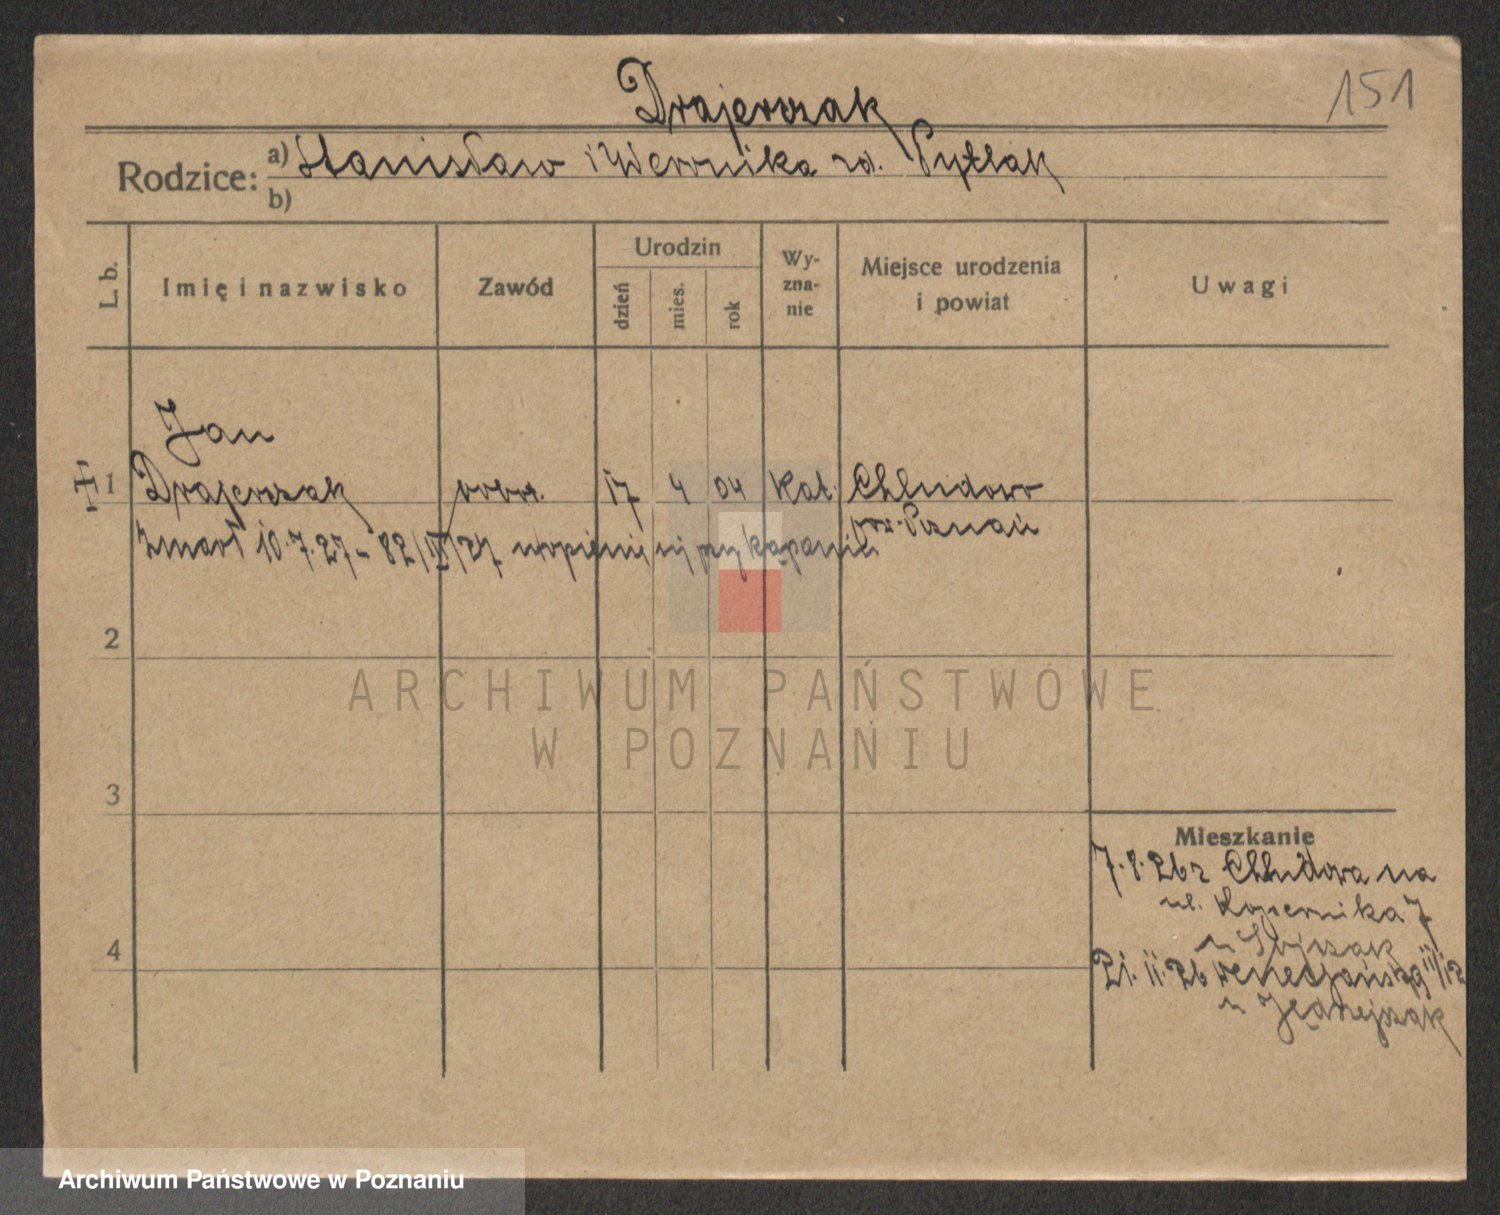 151
Drajerczak
Rodzice: a) Stanisław i Weronika rd. Pytlak
b)
L. b.
Imię i nazwisko
Zawód
Urodzin
dzień
mies.
rok
Wy-
zna-
nie
Miejsce urodzenia
i powiat
Uwagi
Jan
1 Drajerczak robot. 17 4 04 kat. Chludowo
pow. Poznań
zmarł 10.7.27 - 82/IV/27 utopienie się przy kąpaniu
2
3
4
Mieszkanie
7.8.26 z Chludowa na
ul. Kopernika 7
u
21.11.26 Wenecjańska 11/12
u Jędrzejczak
ARCHIWUM PAŃSTWOWE
W POZNANIU
Archiwum Państwowe w Poznaniu